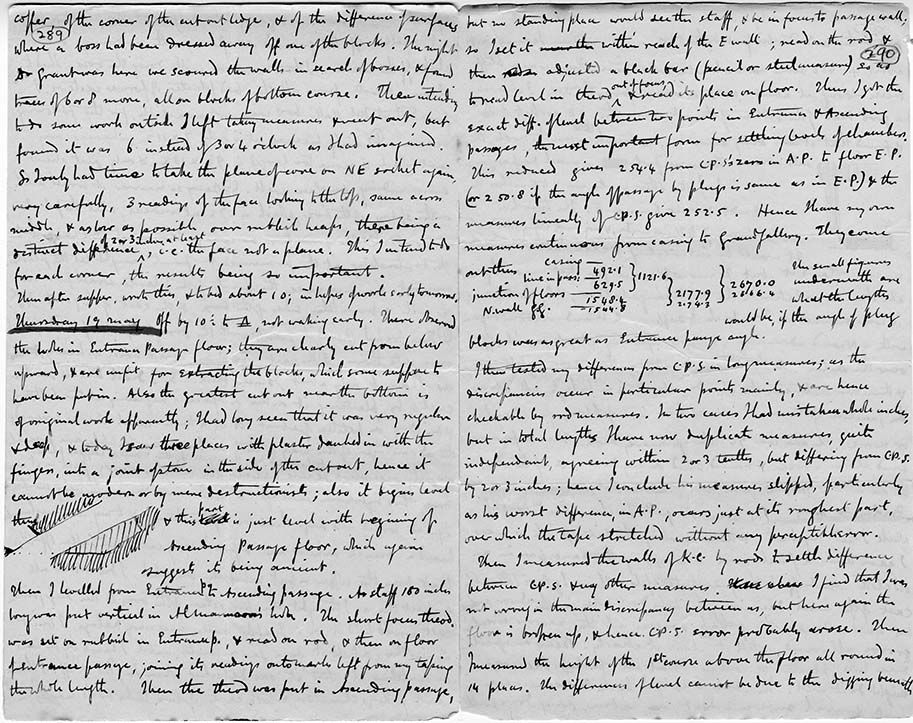 289
coffer, of the corner of the cut out ledge, & of the difference of surfaces
where a boss had been dressed away off one of the blocks. The night
Dr Grant was here we scoured the walls in search of bosses, & found
traces of 6 or 8 more, all on blocks of bottom course. Then intending
to do some work outside I left taking measures & went out, but
found it was 6 instead of 3 or 4 o'clock as I had imagined.
So I only had time to take the plane of core on NE socket again
very carefully, 3 readings of the face looking to the top, same across
middle, & as low as possible over rubbish heaps, there being a
distinct difference of 2 or 3 inches at least, i.e. the face not a plane. This I intend to do
for each corner, the results being so important.
Then after supper, wrote this, & to bed about 10; in hopes of work early tomorrow.
Thursday 19 May Off by 10 to Δ, not waking early. There observed
the holes in Entrance Passage floor; they are clearly cut from below
upward, & are unfit for extracting the blocks, which some suppose to
have been put in. Also the greatest cut out near the bottom is
of original work apparently; I had long seen that it was very regular
& deep, & today I saw three places with plaster daubed in with the
finger, into a joint of stone in the side of the cut out, hence it
cannot be modern or by mere destructionists; also it begins level
thus & this part is just level with beginning of
Ascending Passage floor, which again
suggests its being ancient.
Then I levelled from Entrance P to Ascending passage. As staff 180 inches
long was put vertical in Al Mamoon's hole. The short focus theod.
was set on rubbish in Entrance p., & read on rod, & then on floor
of entrance passage, joining its readings onto marks left from my taping
the whole length. Then the theod was put in Ascending passage,
290
but no standing place would see the staff, & be in focus to passage wall;
so I set it within reach of the E wall; read on the rod &
then adjusted a black bar (pencil or steel measure) so as
to read level in theod out of focus & read its place on floor. Thus I got the
exact diff. of level between two points in Entrance & Ascending
passages, the most important form for settling levels of chambers.
This reduced gives 254.4 from C.P.S's zero in A.P. to floor E.P.
(or 250.8 if the angle of passage by plugs is same as in E.P.) & the
measures lineally of C.P.S. give 252.5. Hence I have my own
measures continuous from casing to Grand gallery. They come
out thus casing —
line in pass. — 492.1
629.5 } 1121.6
junction of floors
1548.4
N. wall G.G. — 1544.8
} 2177.9
2174.3
} 2670.0
2666.4
The small figures
underneath are
what the lengths
would be, if the angle of plug
blocks was as great as Entrance passage angle.
I then tested my difference from C.P.S. in long measures; as the
discrepancies occur in particular points mainly, & are hence
checkable by rod measures. In two cases I had mistaken whole inches,
but in total lengths I have now duplicate measures, quite
independant, agreeing within 2 or 3 tenths, but differing from C.P.S.
by 2 or 3 inches; hence I conclude his measures slipped, particularly
as his worst difference, in A.P., occurs just at its roughest part,
over which the tape stretched without any perceptible error.
Then I measured the walls of K.C. by rods to settle difference
between C.P.S. & my other measures I find that I was
not wrong in the main discrepancy between us, but here again the
floor is broken up, & hence C.P.S. error probably arose. Then
I measured the height of the 1st course above the floor all round in
14 places. The differences of level cannot be due to the digging beneath